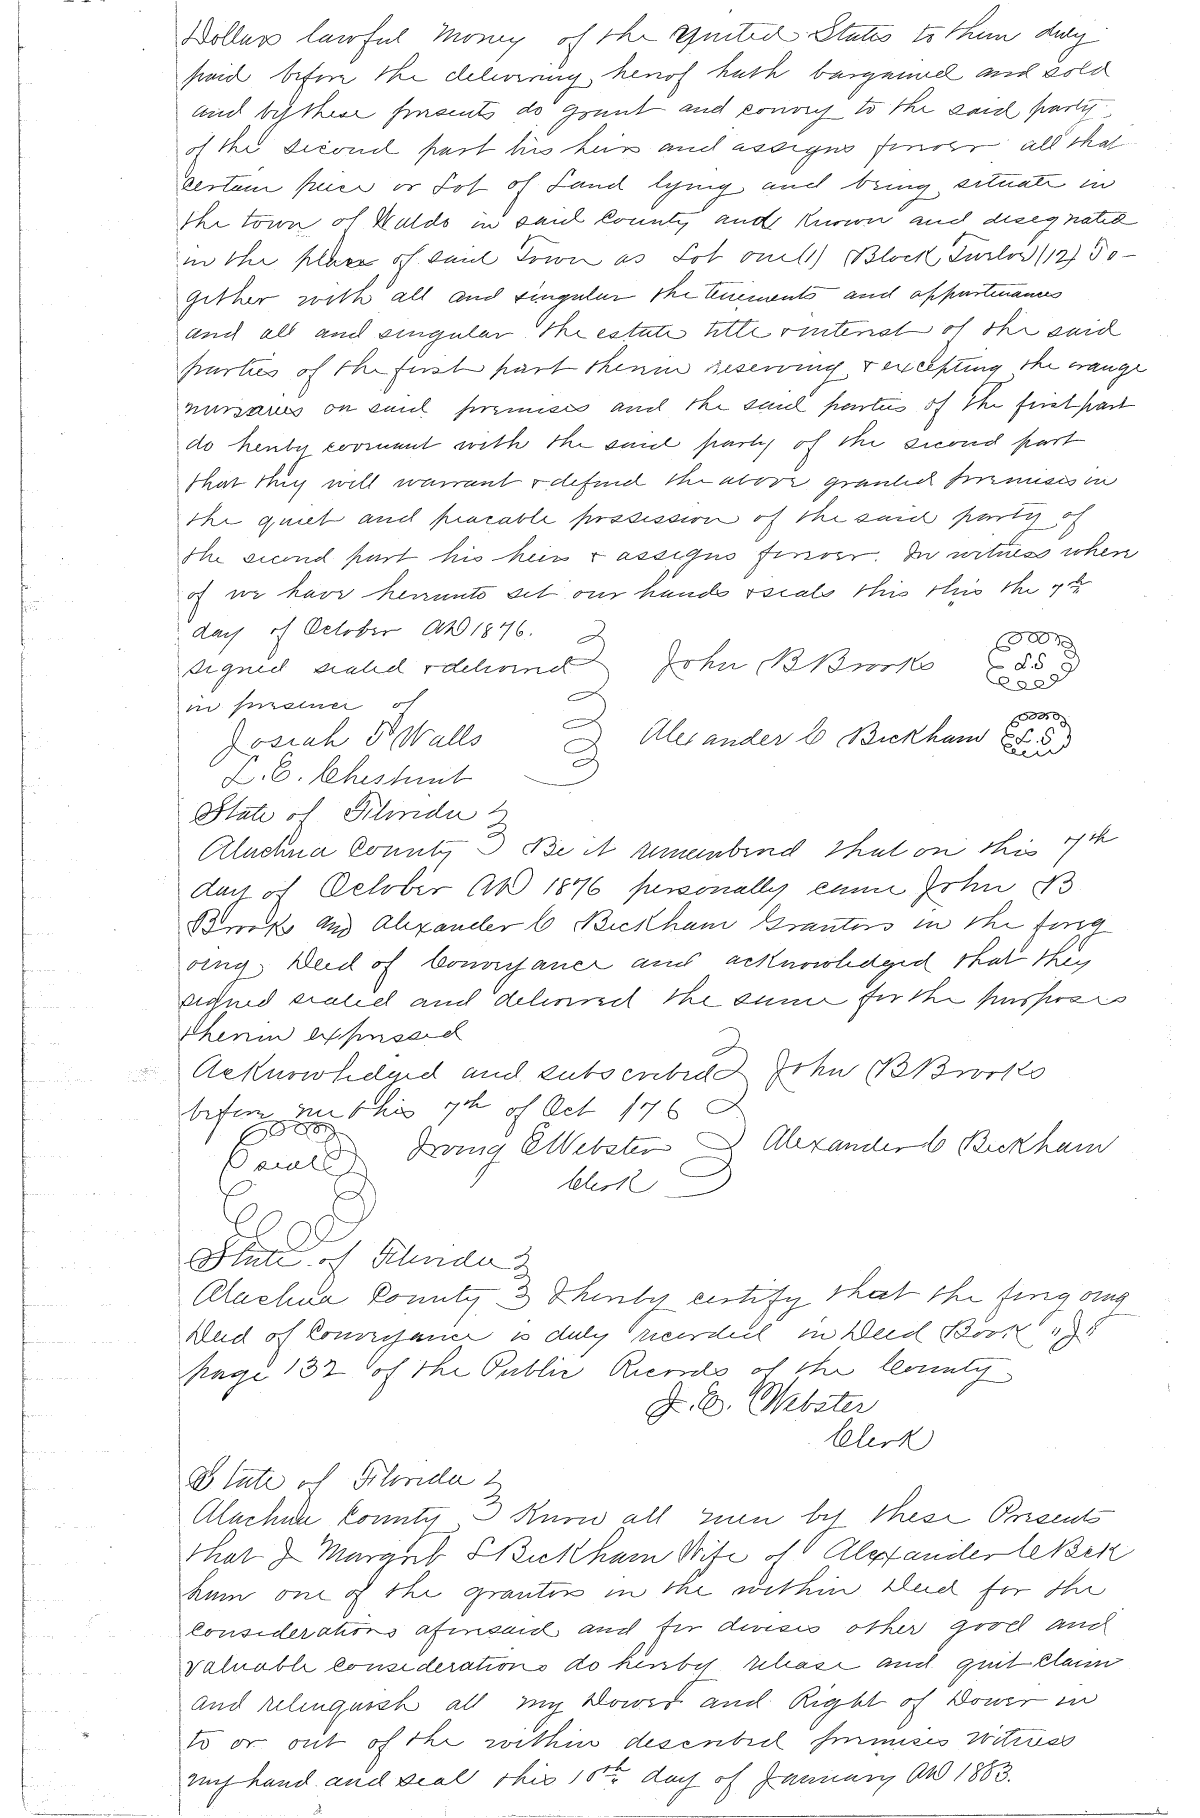 Dollars lawful money of the United States to them duly
paid before the delivering hereof hath bargained and sold
and by these presents do grant and convey to the said party
of the second part his heirs and assigns forever all that
certain piece or Lot of Land lying and being situate in
the town of Waldo in said County and known and designated
in the place of said Town as Lot one (1) Block Twelve (12) To-
gether with all and singular the tenements and appurtenances
and all and singular the estate title + interest of the said
parties of the first part therein reserving + excepting the orange
nursaries on said premises and the said parties of the first part
do hereby covenant with the said party of the second part
that they will warrant + defend the above granted premises in
the quiet and peacable possession of the said party of
the second part his heirs + assigns forever. In witness where
of we have hereunto set our hands + seals this this the 7th
day of October AD 1876.
signed sealed + delivered John B Brooks LS
in presence of
Josiah T Walls Alexander C Beckham LS
L. E. Chesthut
State of Florida
Alachua County Be it remembered that on this 7th
day of October AD 1876 personally came John B
Brooks and Alexander C Beckham Grantors in the foreg
oing Deed of Conveyance and acknowledged that they
signed sealed and delivered the same for the purposes
therein expressed
Acknowledged and subscribed John B Brooks
before me this 7th of Oct 176
seal Irving E Webster Alexander C Beckham
Clerk
State of Florida
Alachua County I hereby certify that the foregoing
Deed of Conveyance is duly recorded in Deed Book "J"
page 132 of the Public Records of the County
I. E. Webster
Clerk
State of Florida
Alachua County Know all men by these Presents
that I Margret S Beckham Wife of Alexander C Beck
ham one of the grantors in the within Deed for the
considerations aforesaid and for divers other good and
valuable considerations do hereby release and quit claim
and relinquish all my Dower and Right of Dower in
to or out of the within described premises Witness
my hand and seal this 10th day of January AD 1883.